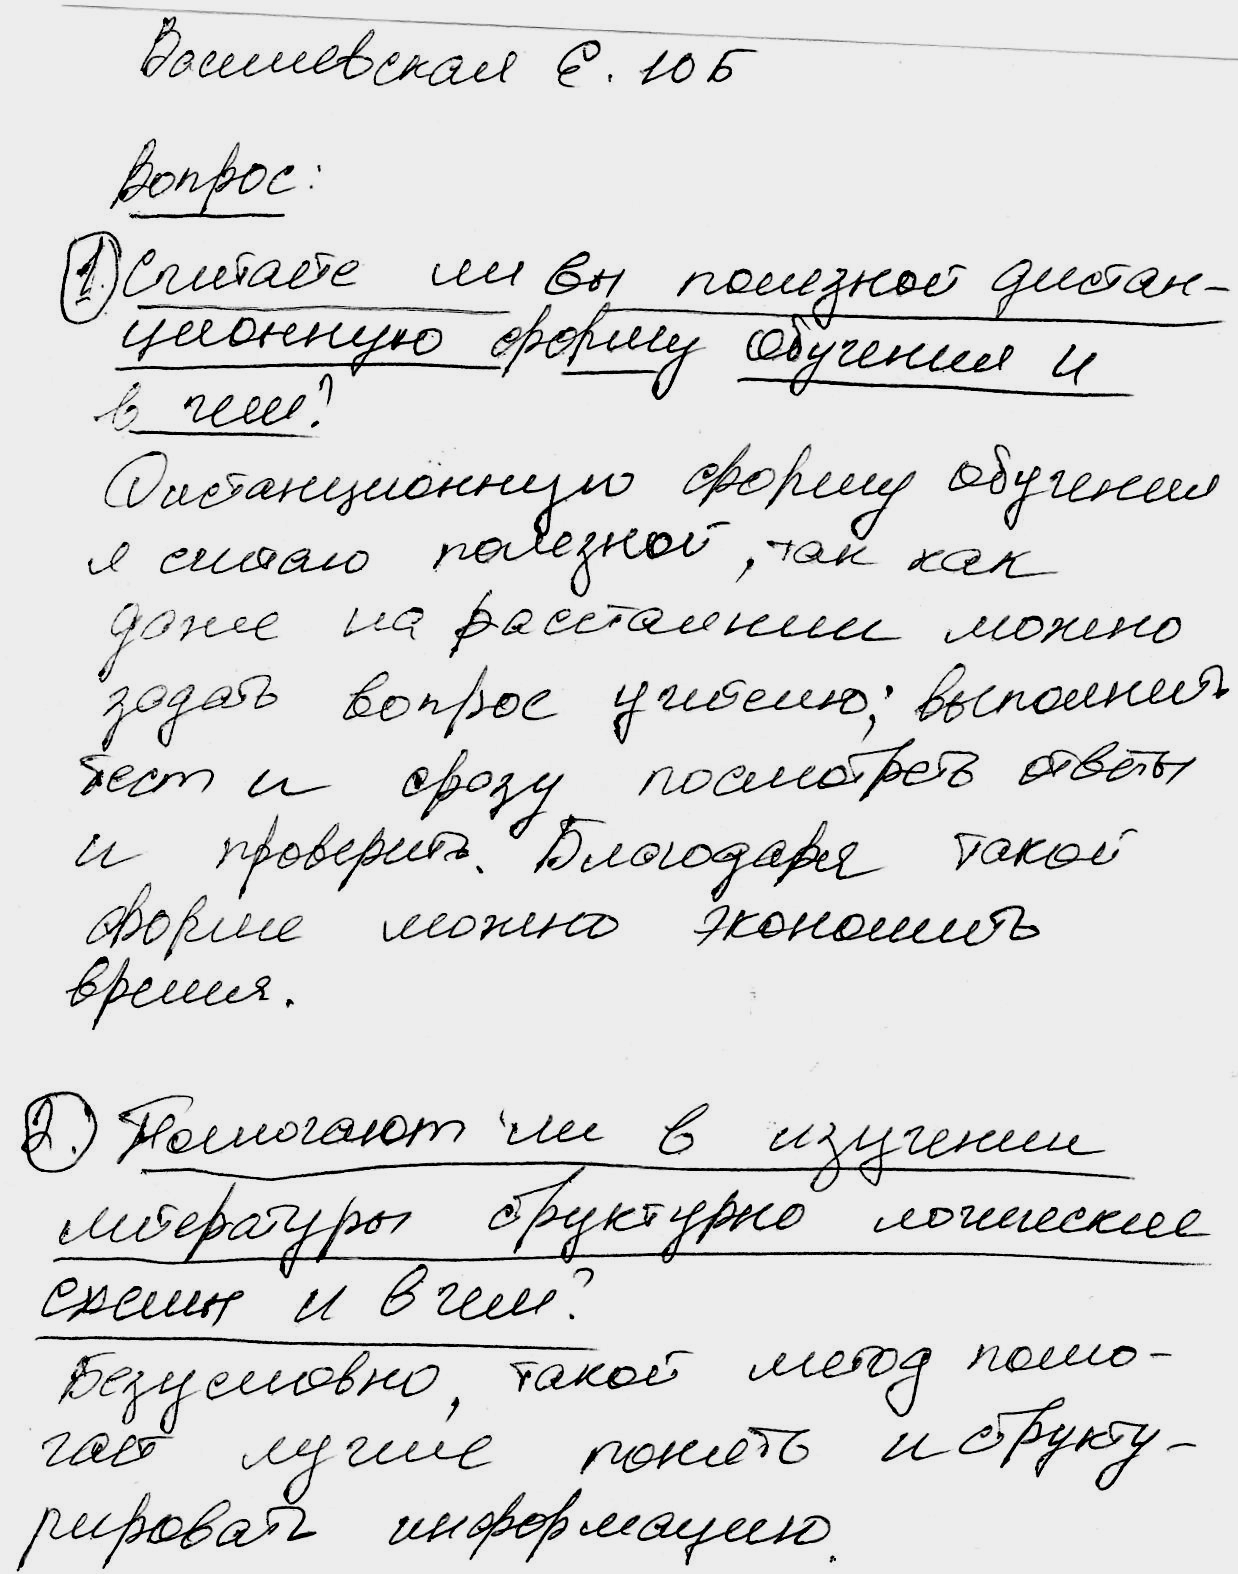 Василевская Е. 10Б
Вопрос:
1. Считаете ли вы полезной дистан-
ционную форму обучения и
в чем?
Дистанционную форму обучения
я считаю полезной, так как
даже на расстоянии можно
задать вопрос учителю; выполнить
тест и сразу посмотреть ответы
и проверить. Благодаря такой
форме можно экономить
время.
2. Помогают ли в изучении
литературы структурно логические
схемы и в чем?
Безусловно, такой метод помо-
гает лучше понять и структу-
рировать информацию.